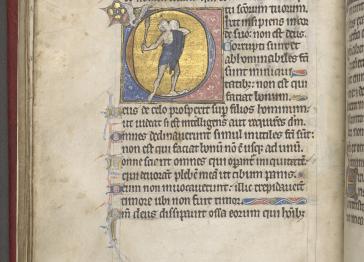 tu sc̄orum tuorum.
Dixit insipiens in cor
de suo: non est deus.
Corrupti sunt et
abhominabiles fc̄i
sunt in iniqui
tatib; non est qui
faciat bonum.
Deus de celo prospexit sup filios hominum
ut uideat si est intelligens aut requirēs dm̄.
Omnes declinauerunt simul inutiles fc̄i sūt:
non est qui faciat bonū nō ē usq; ad unū.
Nonne scient omnes qui opant̄ iniquitatē:
qui deuorāt plebē meā ut cibum panis.
Deum non inuocauerunt: illic trepidauerūt
timore ubi non fuit timor.
Qm̄ deus dissipauit ossa eorum qui hōib;